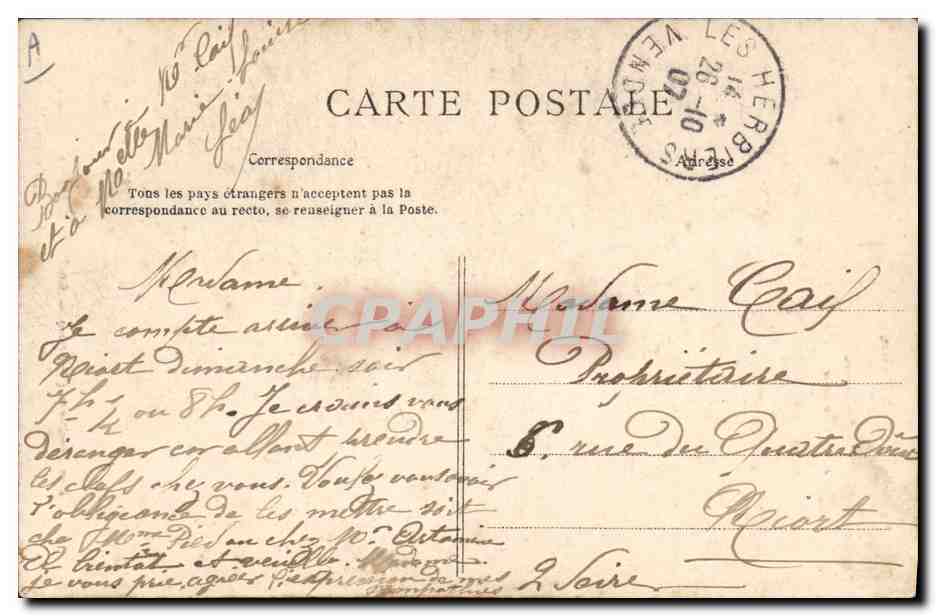 A
Bonjour à Mr Cail
et à Melle Marie Louise
CARTE POSTALE
LES HERBIERS
14
26-10
07
VENDÉE
Correspondance
Adresse
Tous les pays étrangers n'acceptent pas la
correspondance au recto, se renseigner à la Poste.
Madame
Je compte arriver à
Niort dimanche soir
7h 1/4 ou 8h. Je crains vous
déranger car allant prendre
les clefs chez vous. Voulez vous avoir
l'obligeance de les mettre soit
che Mme Pied ou chez Mr
A bientot et veuillez Madame
je vous prie, agréer l'expression de mes
sympathies
Madame Cail
Propriétaire
6, rue du Quatre
Niort
2 Sèvre
CPAPHIL